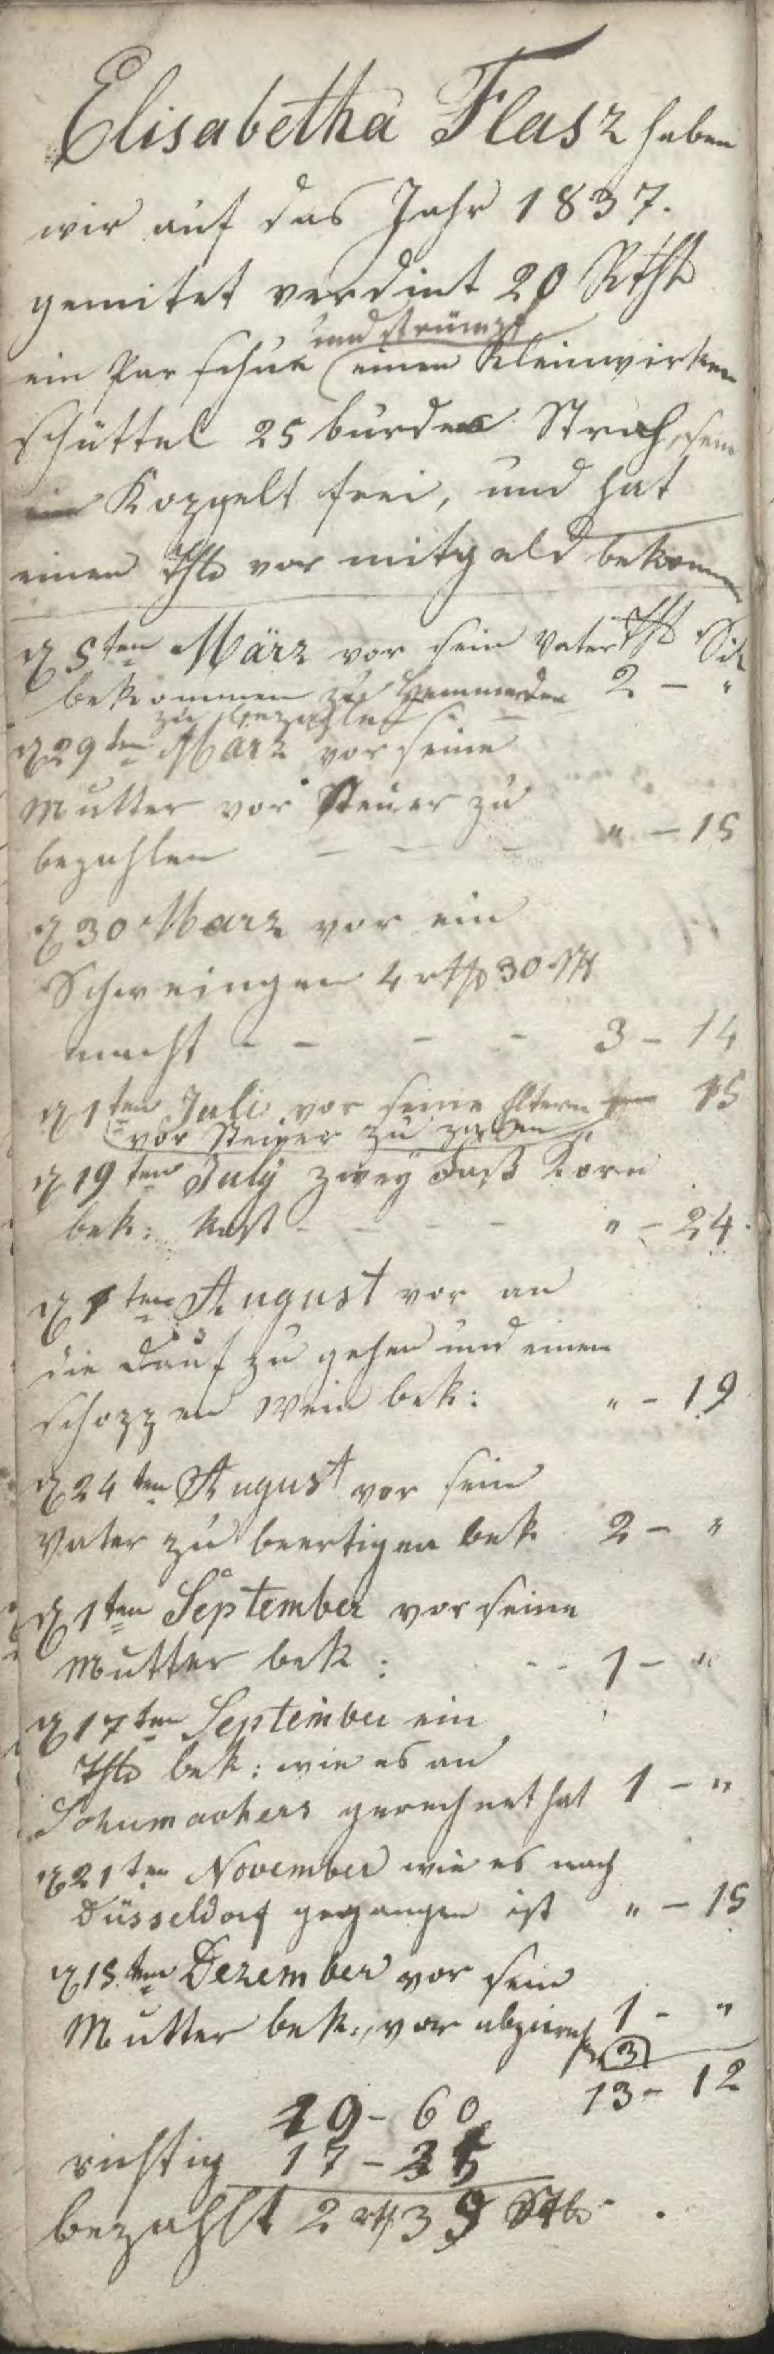 Elisabetha Flasz haben
wir auf das Jahr 1837.
gemitet verdint 20 Rthl
und strümpf
ein Par schue einen Kleinwirken
schüttel 25 bürden Stroh, sein
Koppelt frei, und hat
einen Thlr vor mitgeld bekommen
d 5ten März vor sein Vater Thl Sil
bekommen zu 2 - "
zu bezahlen
d 29ten März vor seine
Mutter vor Steuer zu
bezahlen - - - " - 15
d 30 März vor ein
Schweingen 4 rthl 30 stb
macht - - - - 3 - 14
d 1ten Juli vor seine Eltern 15
vor Steuer zu zalen
d 19ten July zwey Faß Korn
bek: kost - - - - " - 24.
d 1ten August vor an
die Dauf zu gehen und einen
schoppen Wein bek: " - 19
d 24ten August vor sein
Vater zu beertigen bek 2 - "
d 1ten September vor seine
Mutter bek: - - 1 - "
d 17ten September ein
Thlr bek: wie es an
Schumachers gerechnet hat 1 - "
d 21ten November wie es nach
Düsseldorf gegangen ist " - 15
d 15ten Dezember vor sein
Mutter bek:, vor 1 - "
3
13 - 12
19 - 60
richtig 17 - 25
bezahlt 2 rth 39 Stb